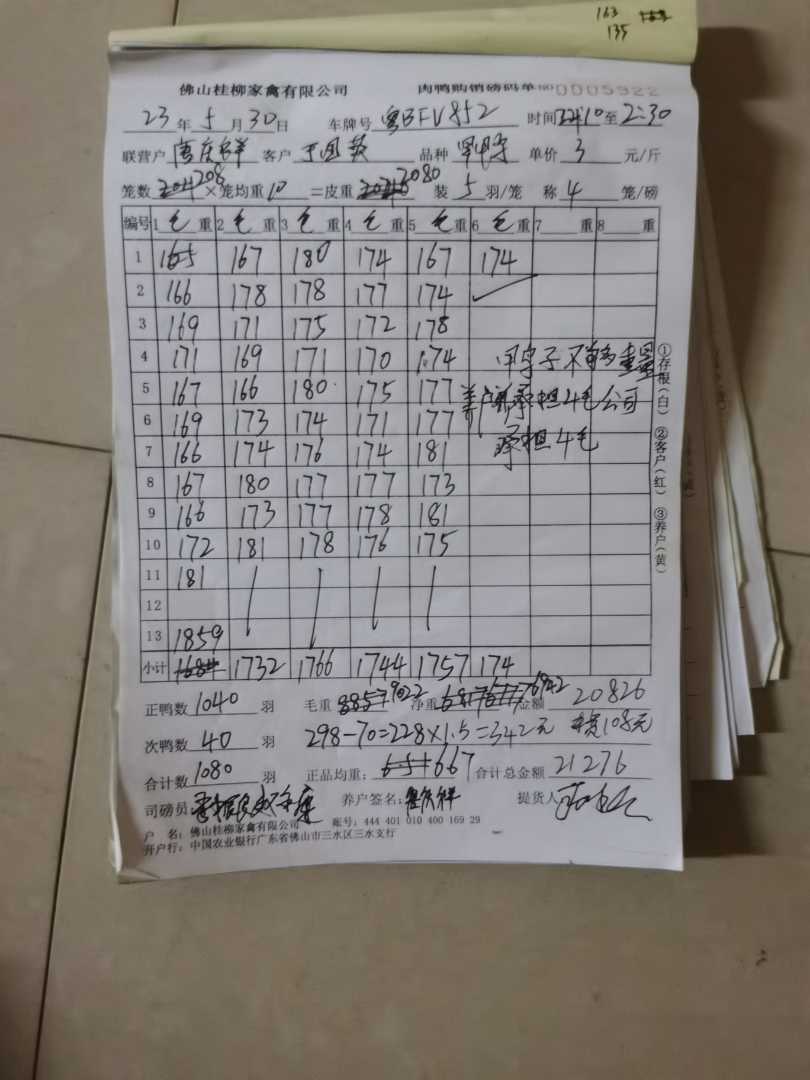 163
135
佛山桂柳家禽有限公司 肉鸭购销磅码单 NO 0005922
23年5月30日 车牌号 粤BFV852 时间 10至2:30
联营户 客户 品种 单价 3 元/斤
笼数 208 ×笼均重 10 =皮重 2080 装 5 羽/笼 称 4 笼/磅
编号 1 毛重 2 毛重 3 毛重 4 毛重 5 毛重 6 毛重 7 重 8 重
1 165 167 180 174 167 174
2 166 178 178 177 174
3 169 171 175 172 178
4 171 169 171 170 174 不够重量
5 167 166 180 175 177 承担4毛公司
6 169 173 174 171 177 承担4毛
7 166 174 176 174 181
8 167 180 177 177 173
9 166 173 177 178 181
10 172 181 178 176 175
11 181
12
13 1859
小计 1732 1766 1744 1757 174
正鸭数 1040 羽 毛重 9022 净重 6942 金额 20826
次鸭数 40 羽 298-70=228×1.5=342元 108元
合计数 1080 羽 正品均重: 667 合计总金额 21276
司磅员 养户签名: 提货人
户 名: 佛山桂柳家禽有限公司 账号: 444 401 010 400 169 29
开户行: 中国农业银行广东省佛山市三水区三水支行
①存根(白) ②客户(红) ③养户(黄)